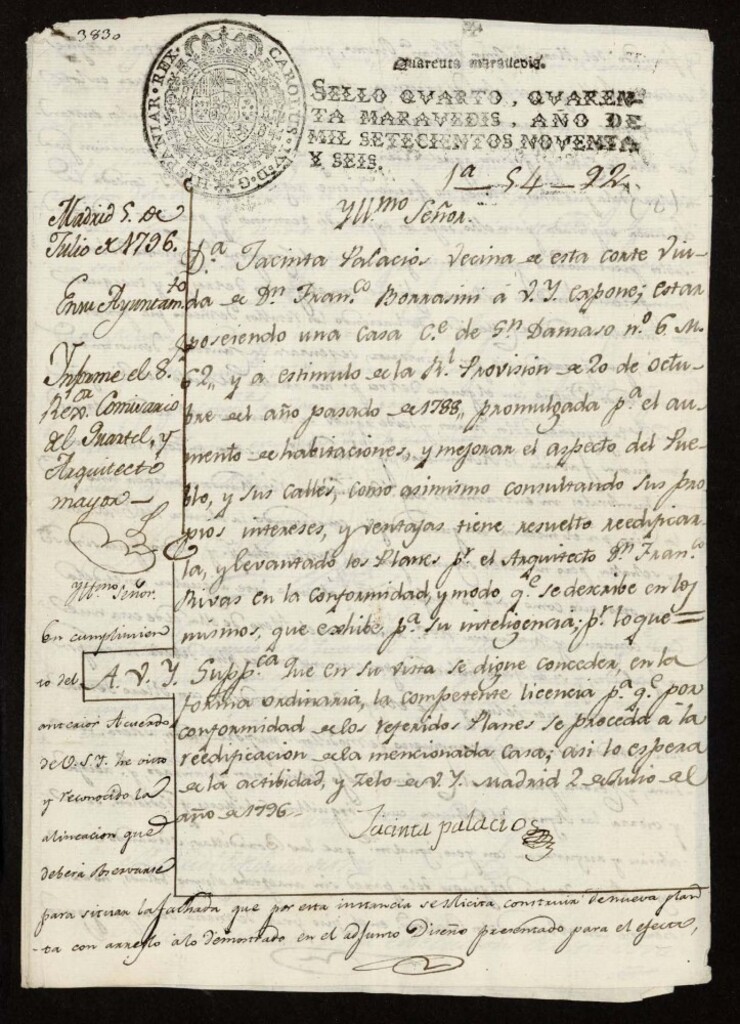 3830
HISPANIAR·REX· CAROLUS·IV·D·G·
Quarenta maravedis.
SELLO QVARTO, QVAREN-
TA MARAVEDIS, AÑO DE
MIL SETECIENTOS NOVENTA
Y SEIS.
1ª - 54 - 22
Yll.mo Señor.
D.ª Jacinta Palacios Vecina de esta corte Viu-
da de D.n Fran.co Borrasini á V. Y. expone; estar
poseiendo una Casa C.e de S.n Damaso n.o 6. M.
62, y a estimulo de la R.l Provision de 20 de octu-
bre del año pasado de 1788, promulgada p.a el au-
mento de habitaciones, y mejorar el aspecto del Pue-
blo, y sus Calles, como asimismo consultando sus pro-
pios intereses, y ventajas tiene resuelto reedificar-
la, y levantado los Planes p.r el Arquitecto D.n Fran.co
Rivas en la conformidad, y modo q.e se describe en los
mismos, que exhibe p.a su inteligencia; p.r lo que =
A. V. Y. Supp.ca que en su vista se digne conceder, en la
forma ordinaria, la competente licencia p.a q.e por
conformidad de los referidos Planes se proceda á la
reedificacion de la mencionada Casa; asi lo espera
de la actibidad, y Zelo de V. Y. Madrid 2 de Julio del
año de 1796.
Jacinta palacios
Madrid 5. de
Julio de 1796.
En su Ayuntam.to
Informe el S.r
Rex.or Comisario
del Quartel, y
Arquitecto
mayor
Yll.mo Señor.
En cumplimien
to del
anterior Acuerdo
de V.S.Y. he visto
y reconocido la
alineacion que
debera observarse
para situar la fachada que por esta instancia se solicita construir de nueva plan
ta con arreglo a lo demostrado en el adjunto Diseño presentado para el efecto,